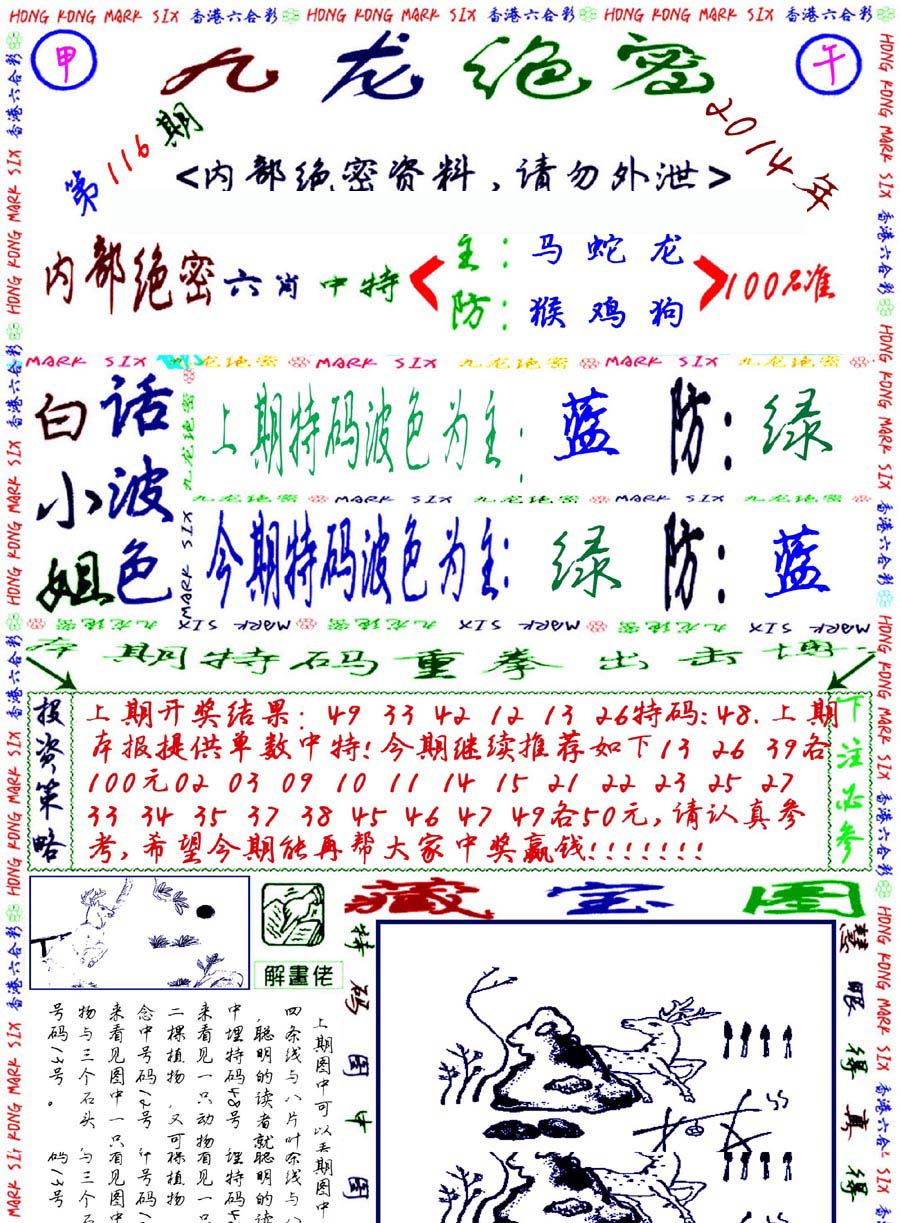 HONG KONG MARK SIX 香港六合彩 HONG KONG MARK SIX 香港六合彩 HONG KONG MARK SIX 香港六合彩
甲 九龙绝密 午
第116期 2014年
<内部绝密资料,请勿外泄>
内部绝密六肖中特
主:马 蛇 龙
防:猴 鸡 狗
100%准
MARK SIX 九龙绝密 MARK SIX 九龙绝密 MARK SIX 九龙绝密
白小姐
话波色
上期特码波色为主:蓝 防:绿
九龙绝密 MARK SIX 九龙绝密 MARK SIX 九龙绝密
今期特码波色为主:绿 防:蓝
九龙绝密 MARK SIX 九龙绝密 MARK SIX 九龙绝密 MARK SIX
本期特码重拳出击博
投资策略
上期开奖结果:49 33 42 12 13 26特码:48.上期
本报提供单数中特!今期继续推荐如下13 26 39各
100元02 03 09 10 11 14 15 21 22 23 25 27
33 34 35 37 38 45 46 47 49各50元,请认真参
考,希望今期能再帮大家中奖赢钱!!!!!!!
下注必参
解畫佬
藏宝图
特码图中图
慧眼得真得
上期图中可以
四条线与八片叶
,聪明的读者就
中埋特码48号
来看见一只动物
二棵植物,又可
念中号码12号
来看见图中一只
物与三个石头
号码13号。